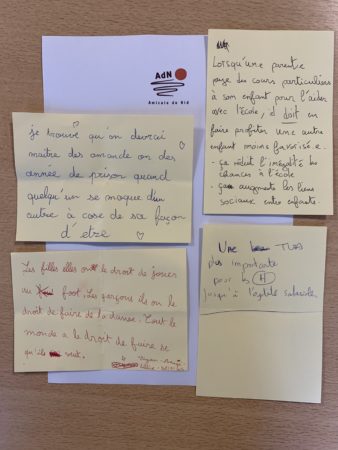 AdN
Amicale du Nid
Lorsqu'une parent.e
paye des cours particuliers
à son enfant pour l'aider
avec l'école, il doit en
faire profiter une autre
enfant moins favorisé.e.
- ça réduit l'inégalité de
chances à l'école
- ça augmente les liens
sociaux entre enfants.
je trouve qu'on devrai
maitre des amande ou des
année de prison quand
quelqu'un se moque d'un
autre à cose de sa façon
d'etre
Les filles elles ont le droit de jouer
au foot. Les garçons ils on le
droit de faire de la danse. Tout le
monde a le droit de faire ce
qu'ils veut.
Une TVA
plus importante
pour les H
jusqu'à l'égalité salariale